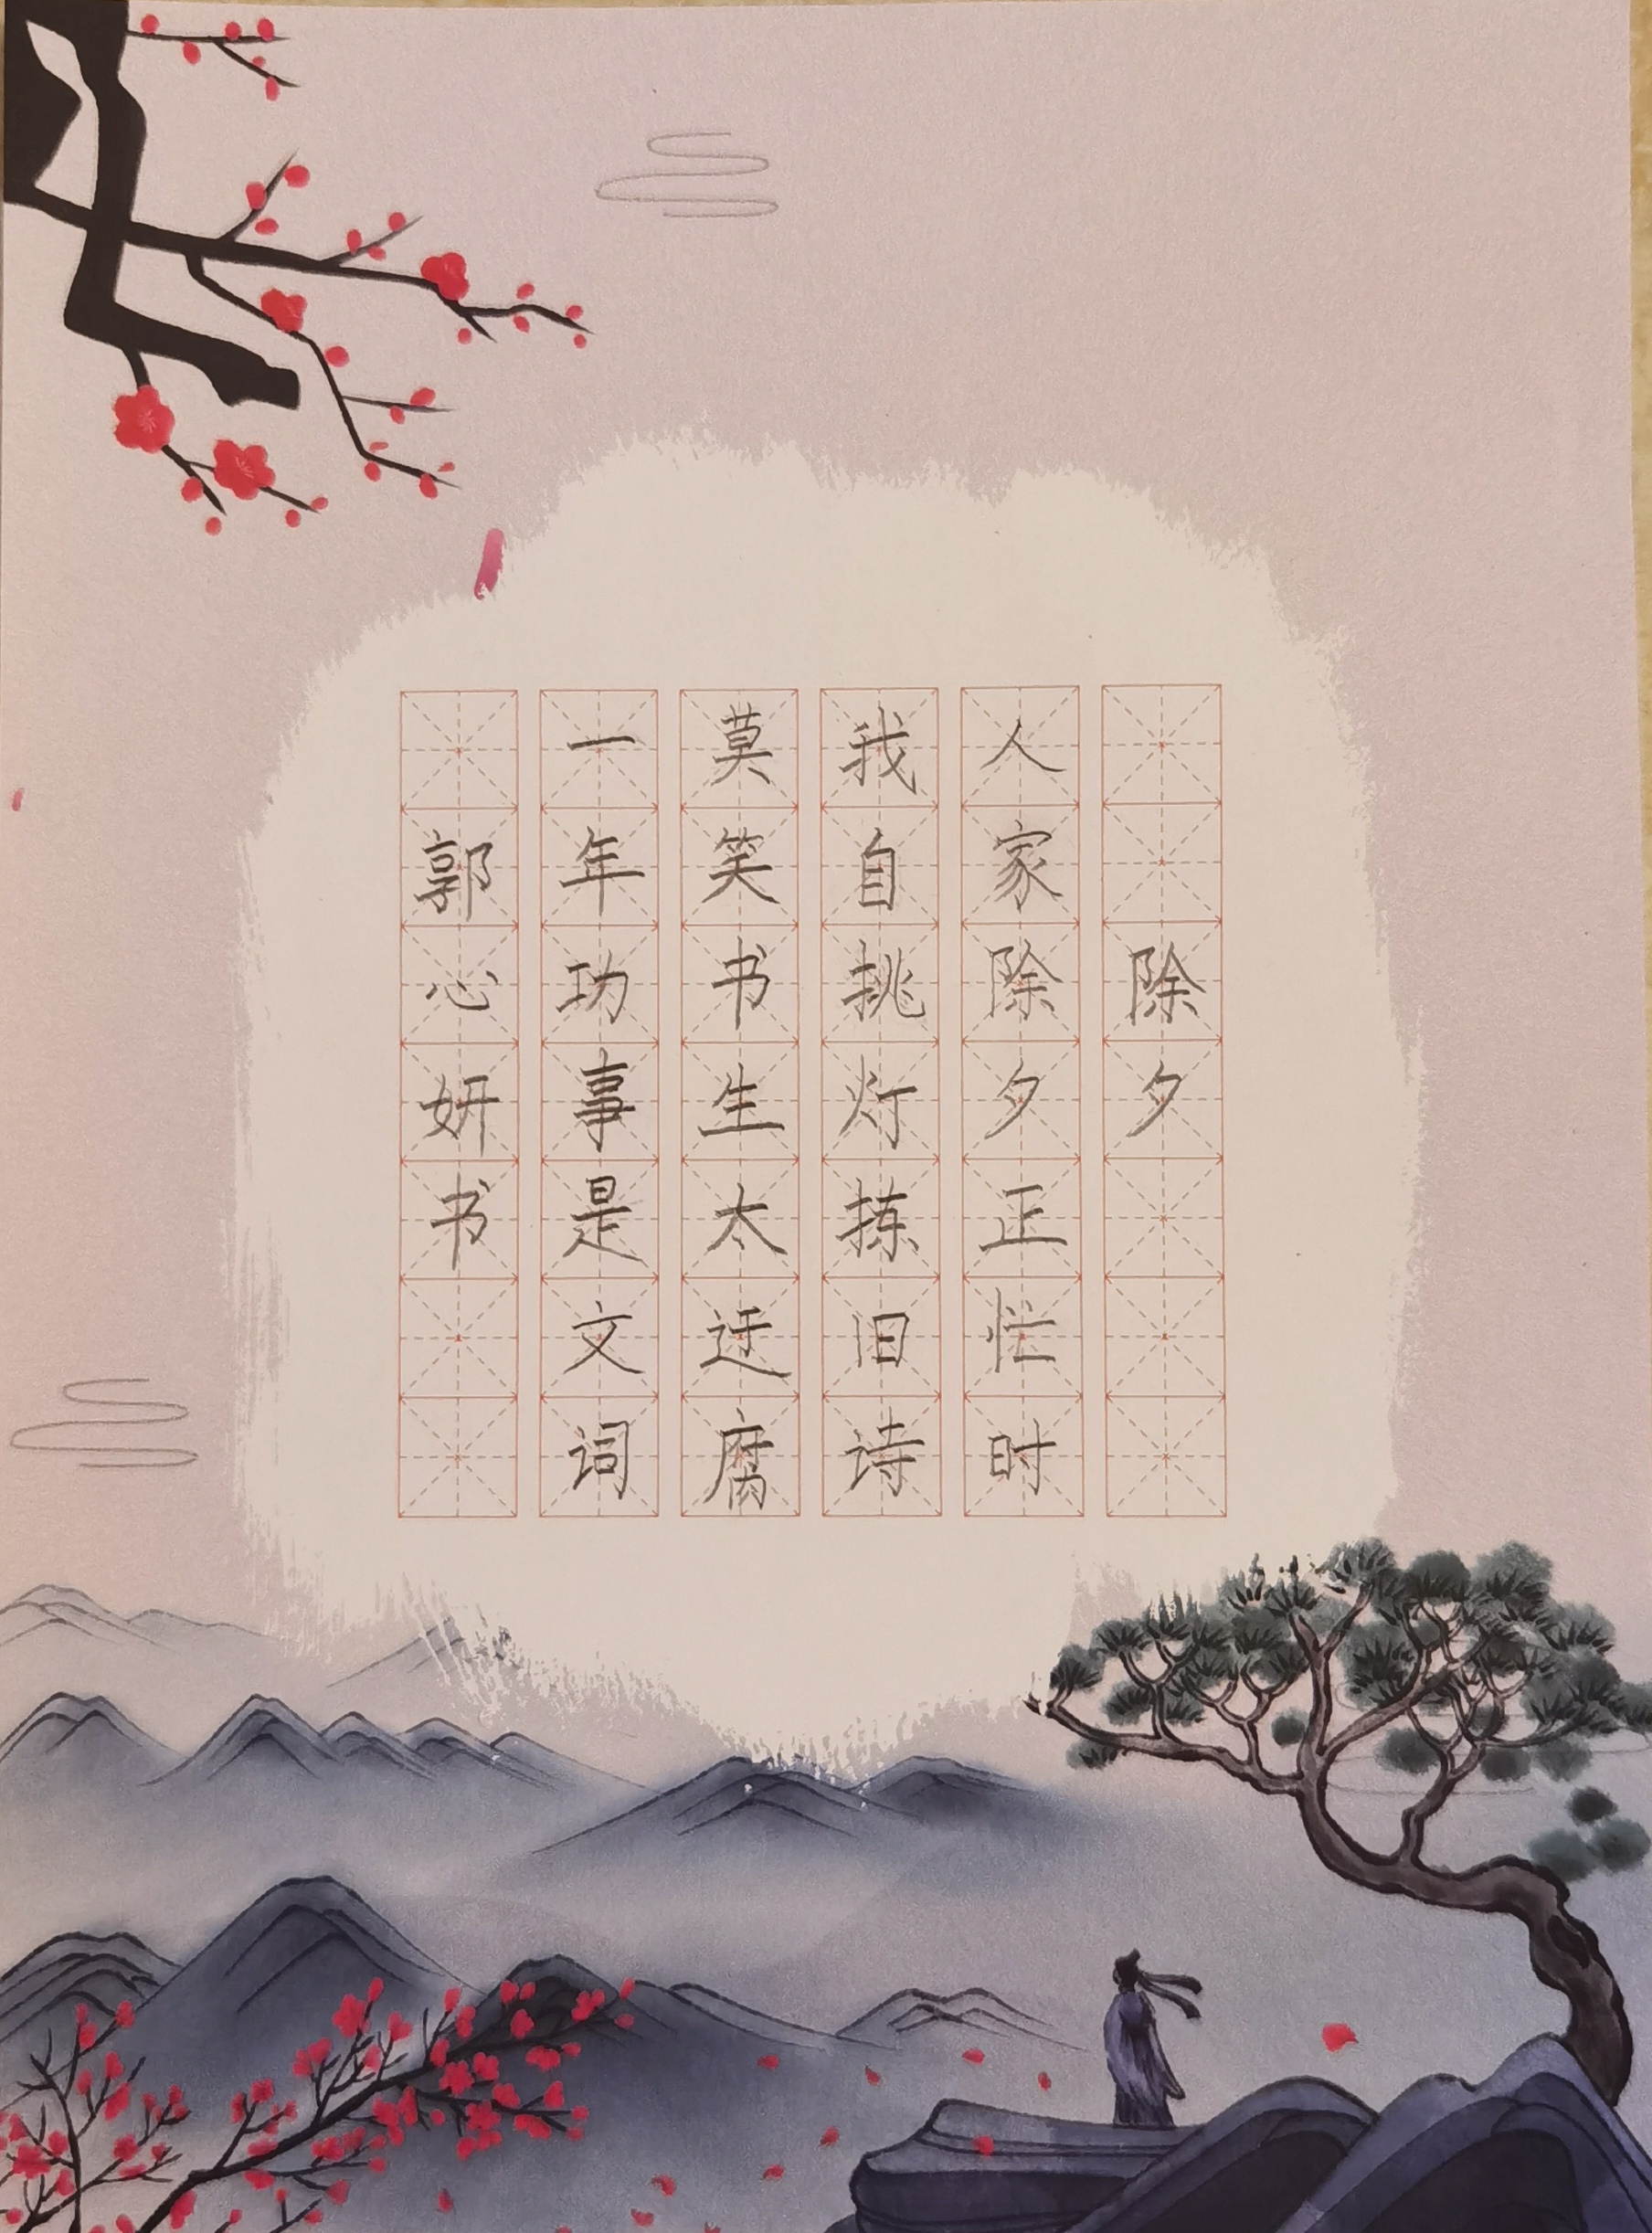 除夕
人家除夕正忙时
我自挑灯拣旧诗
莫笑书生太迂腐
一年功事是文词
郭心妍书